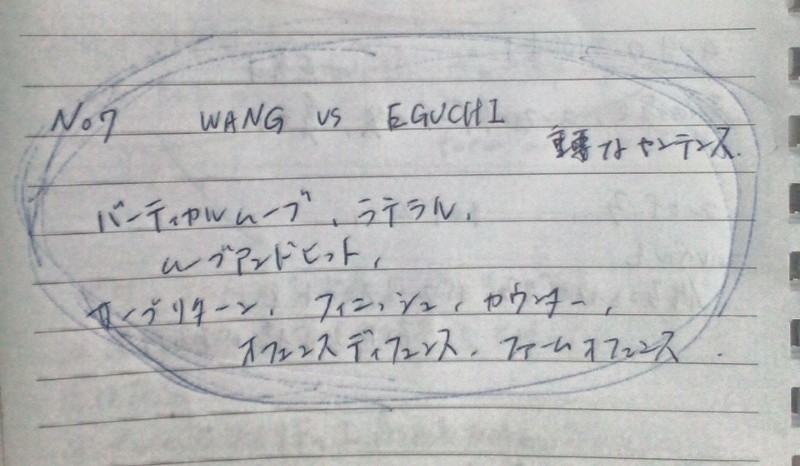 No7 WANG vs EGUCHI
重要なセンテンス.
バーティカルムーブ、ラテラル、
ムーブアンドヒット、
サーブリターン、フィニッシュ、カウンター、
オフェンスディフェンス、ファームオフェンス.